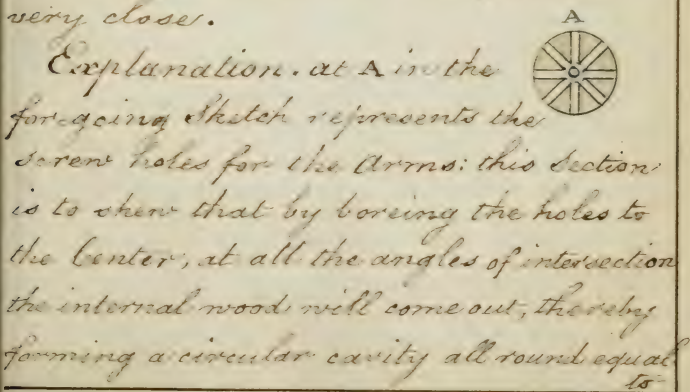 very close.
A
Explanation. at A in the
for-going Sketch represents the
screw holes for the Arms: this Section
is to shew that by boreing the holes to
the Center, at all the angles of intersection
the internal wood will come out, thereby
forming a circular cavity all round equal
to